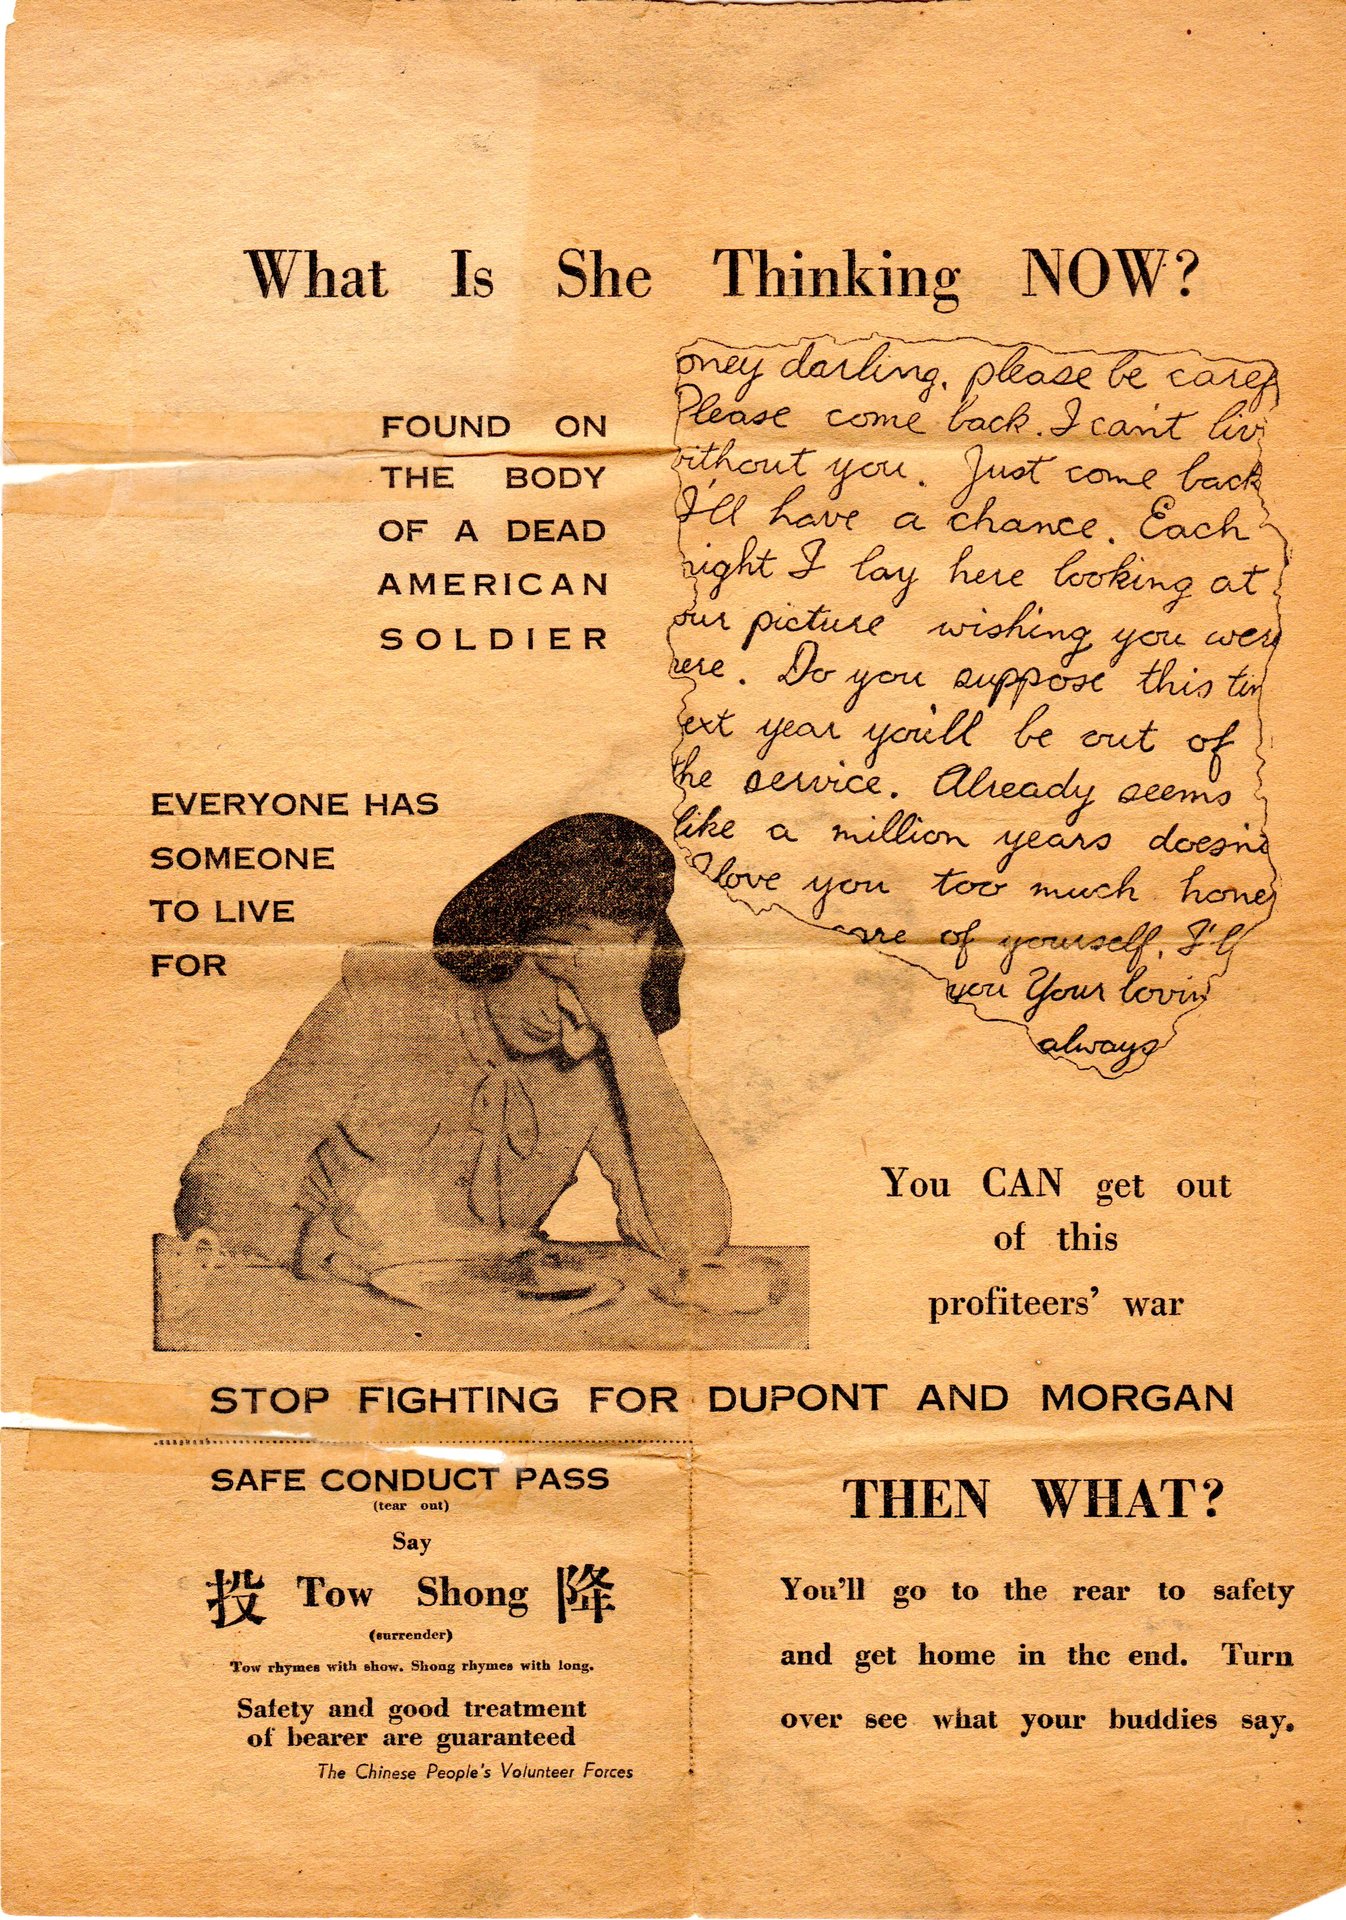 What Is She Thinking NOW?
FOUND ON
THE BODY
OF A DEAD
AMERICAN
SOLDIER
oney darling, please be caref
Please come back. I can't liv
ithout you. Just come back
I'll have a chance. Each
night I lay here looking at
our picture wishing you were
ere. Do you suppose this tim
ext year you'll be out of
the service. Already seems
like a million years doesn't
I love you too much hone
are of yourself. I'll
you Your lovin
always
EVERYONE HAS
SOMEONE
TO LIVE
FOR
You CAN get out
of this
profiteers' war
STOP FIGHTING FOR DUPONT AND MORGAN
SAFE CONDUCT PASS
(tear out)
Say
投 Tow Shong 降
(surrender)
Tow rhymes with show. Shong rhymes with long.
Safety and good treatment
of bearer are guaranteed
The Chinese People's Volunteer Forces
THEN WHAT?
You'll go to the rear to safety
and get home in the end. Turn
over see what your buddies say.